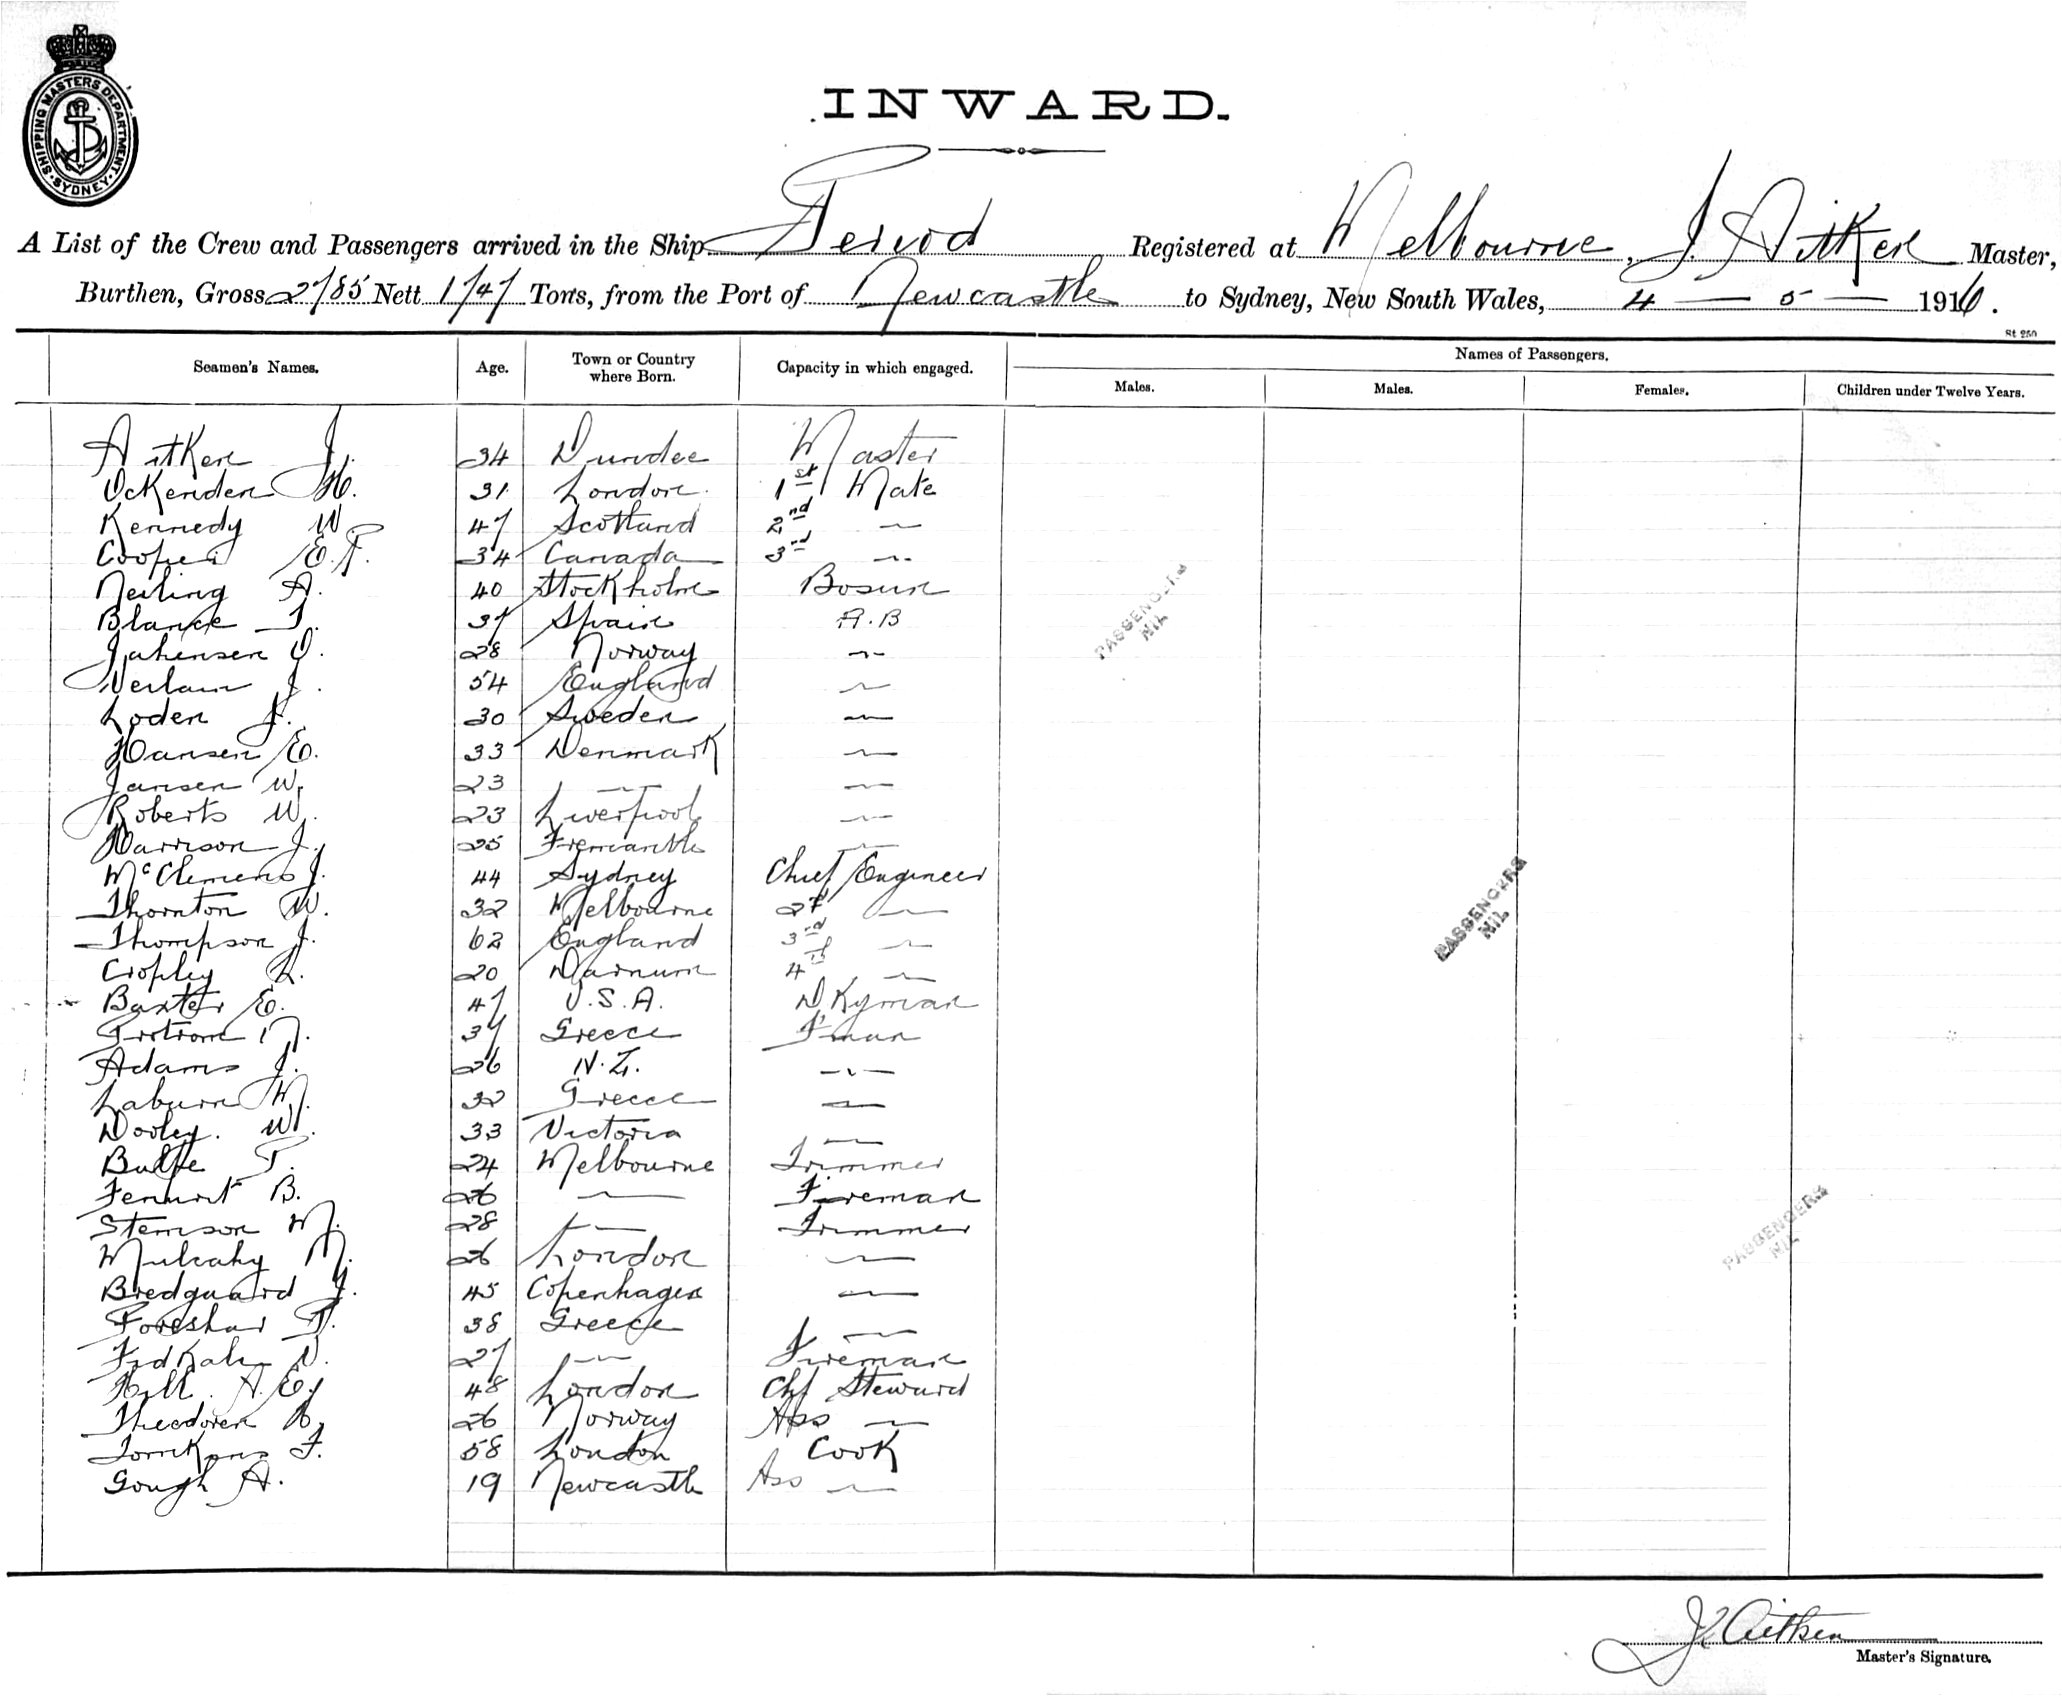 SHIPPING MASTERS DEPARTMENT. SYDNEY.
INWARD.
A List of the Crew and Passengers arrived in the Ship Period Registered at Melbourne, J. Aitken Master,
Burthen, Gross 2785 Nett 1747 Tons, from the Port of Newcastle to Sydney, New South Wales, 4 — 5 — 1916.
St 250
Seamen's Names. Age. Town or Country where Born. Capacity in which engaged. Names of Passengers.
Males. Males. Females. Children under Twelve Years.
Aitken J. 34 Dundee Master
Ockenden H. 31 London 1st Mate
Kennedy W 47 Scotland 2nd —
Cooper E.F. 34 Canada 3rd —
Neiling A. 40 Stockholm Bosun
Blance J. 37 Spain A.B
Johensen O. 28 Norway —
J. 54 England —
Loden J. 30 Sweden —
Hansen E. 33 Denmark —
Jansen W. 23 — —
Roberts W. 23 Liverpool —
Harrison J. 25 Fremantle —
McClemens J. 44 Sydney Chief Engineer
Thornton W. 32 Melbourne 2nd —
Thompson J. 62 England 3rd —
Cropley L. 20 Darnum 4th —
Baxter E. 47 U.S.A. DKyman
37 Greece F'man
Adams J. 26 N.Z. —
Laburn M. 32 Greece —
Dooley. W. 33 Victoria —
Bulfe T. 24 Melbourne Trimmer
B. 26 — Fireman
Stemson M. 28 — Trimmer
Mulcahy M. 26 London —
Bredguard J. 45 Copenhagen —
Foreshar T. 38 Greece —
27 — Fireman
Hill. A.E. 48 London Chf Steward
Theodoren 26 Norway Ass —
Tomkins F. 58 London Cook
Gough A. 19 Newcastle Ass —
PASSENGERS
NIL
PASSENGERS
NIL
PASSENGERS
NIL
J Aitken
Master's Signature.